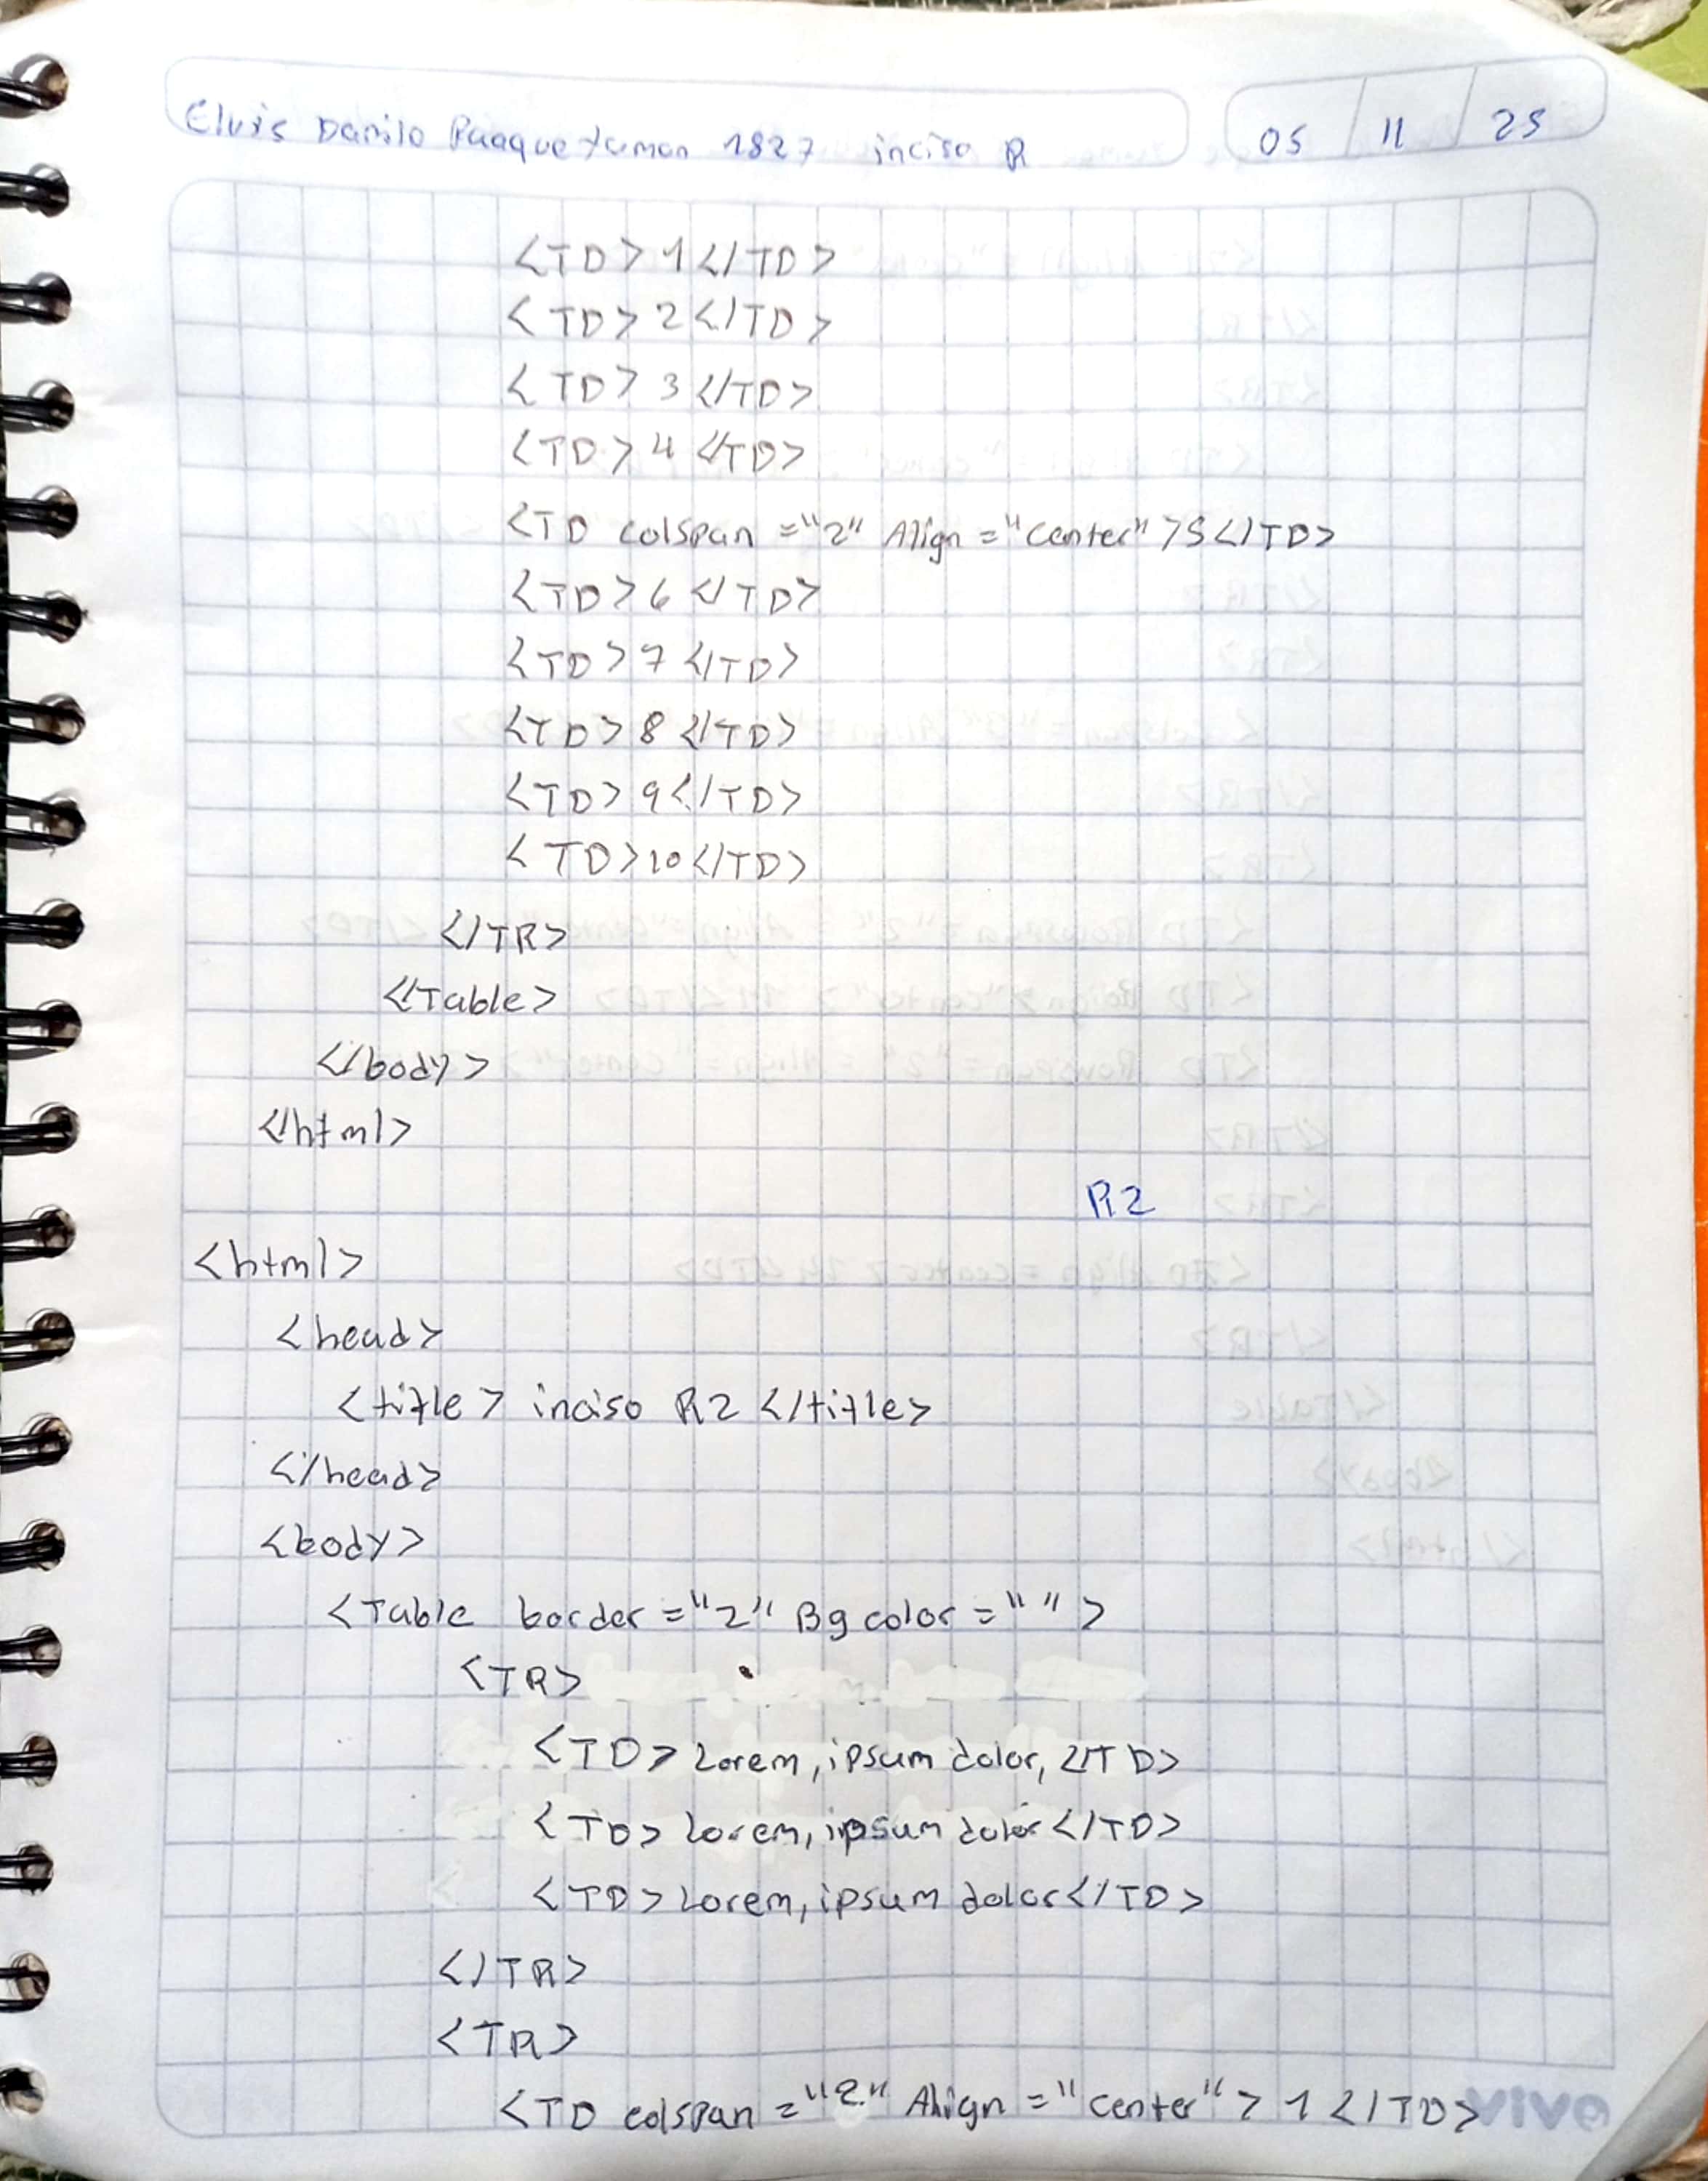 Elvis Danilo 1827 inciso R 05 / 11 / 25
<TD>1</TD>
<TD>2</TD>
<TD>3</TD>
<TD>4</TD>
<TD colspan="2" Align="center">5</TD>
<TD>6</TD>
<TD>7</TD>
<TD>8</TD>
<TD>9</TD>
<TD>10</TD>
</TR>
</Table>
</body>
</html>
R2
<html>
<head>
<title> inciso R2 </title>
</head>
<body>
<Table border="2" Bg color=" ">
<TR>
<TD> Lorem, ipsum dolor, </TD>
<TD> Lorem, ipsum dolor </TD>
<TD> Lorem, ipsum dolor </TD>
</TR>
<TR>
<TD colspan="2" Align="center"> 1 </TD>
vivo